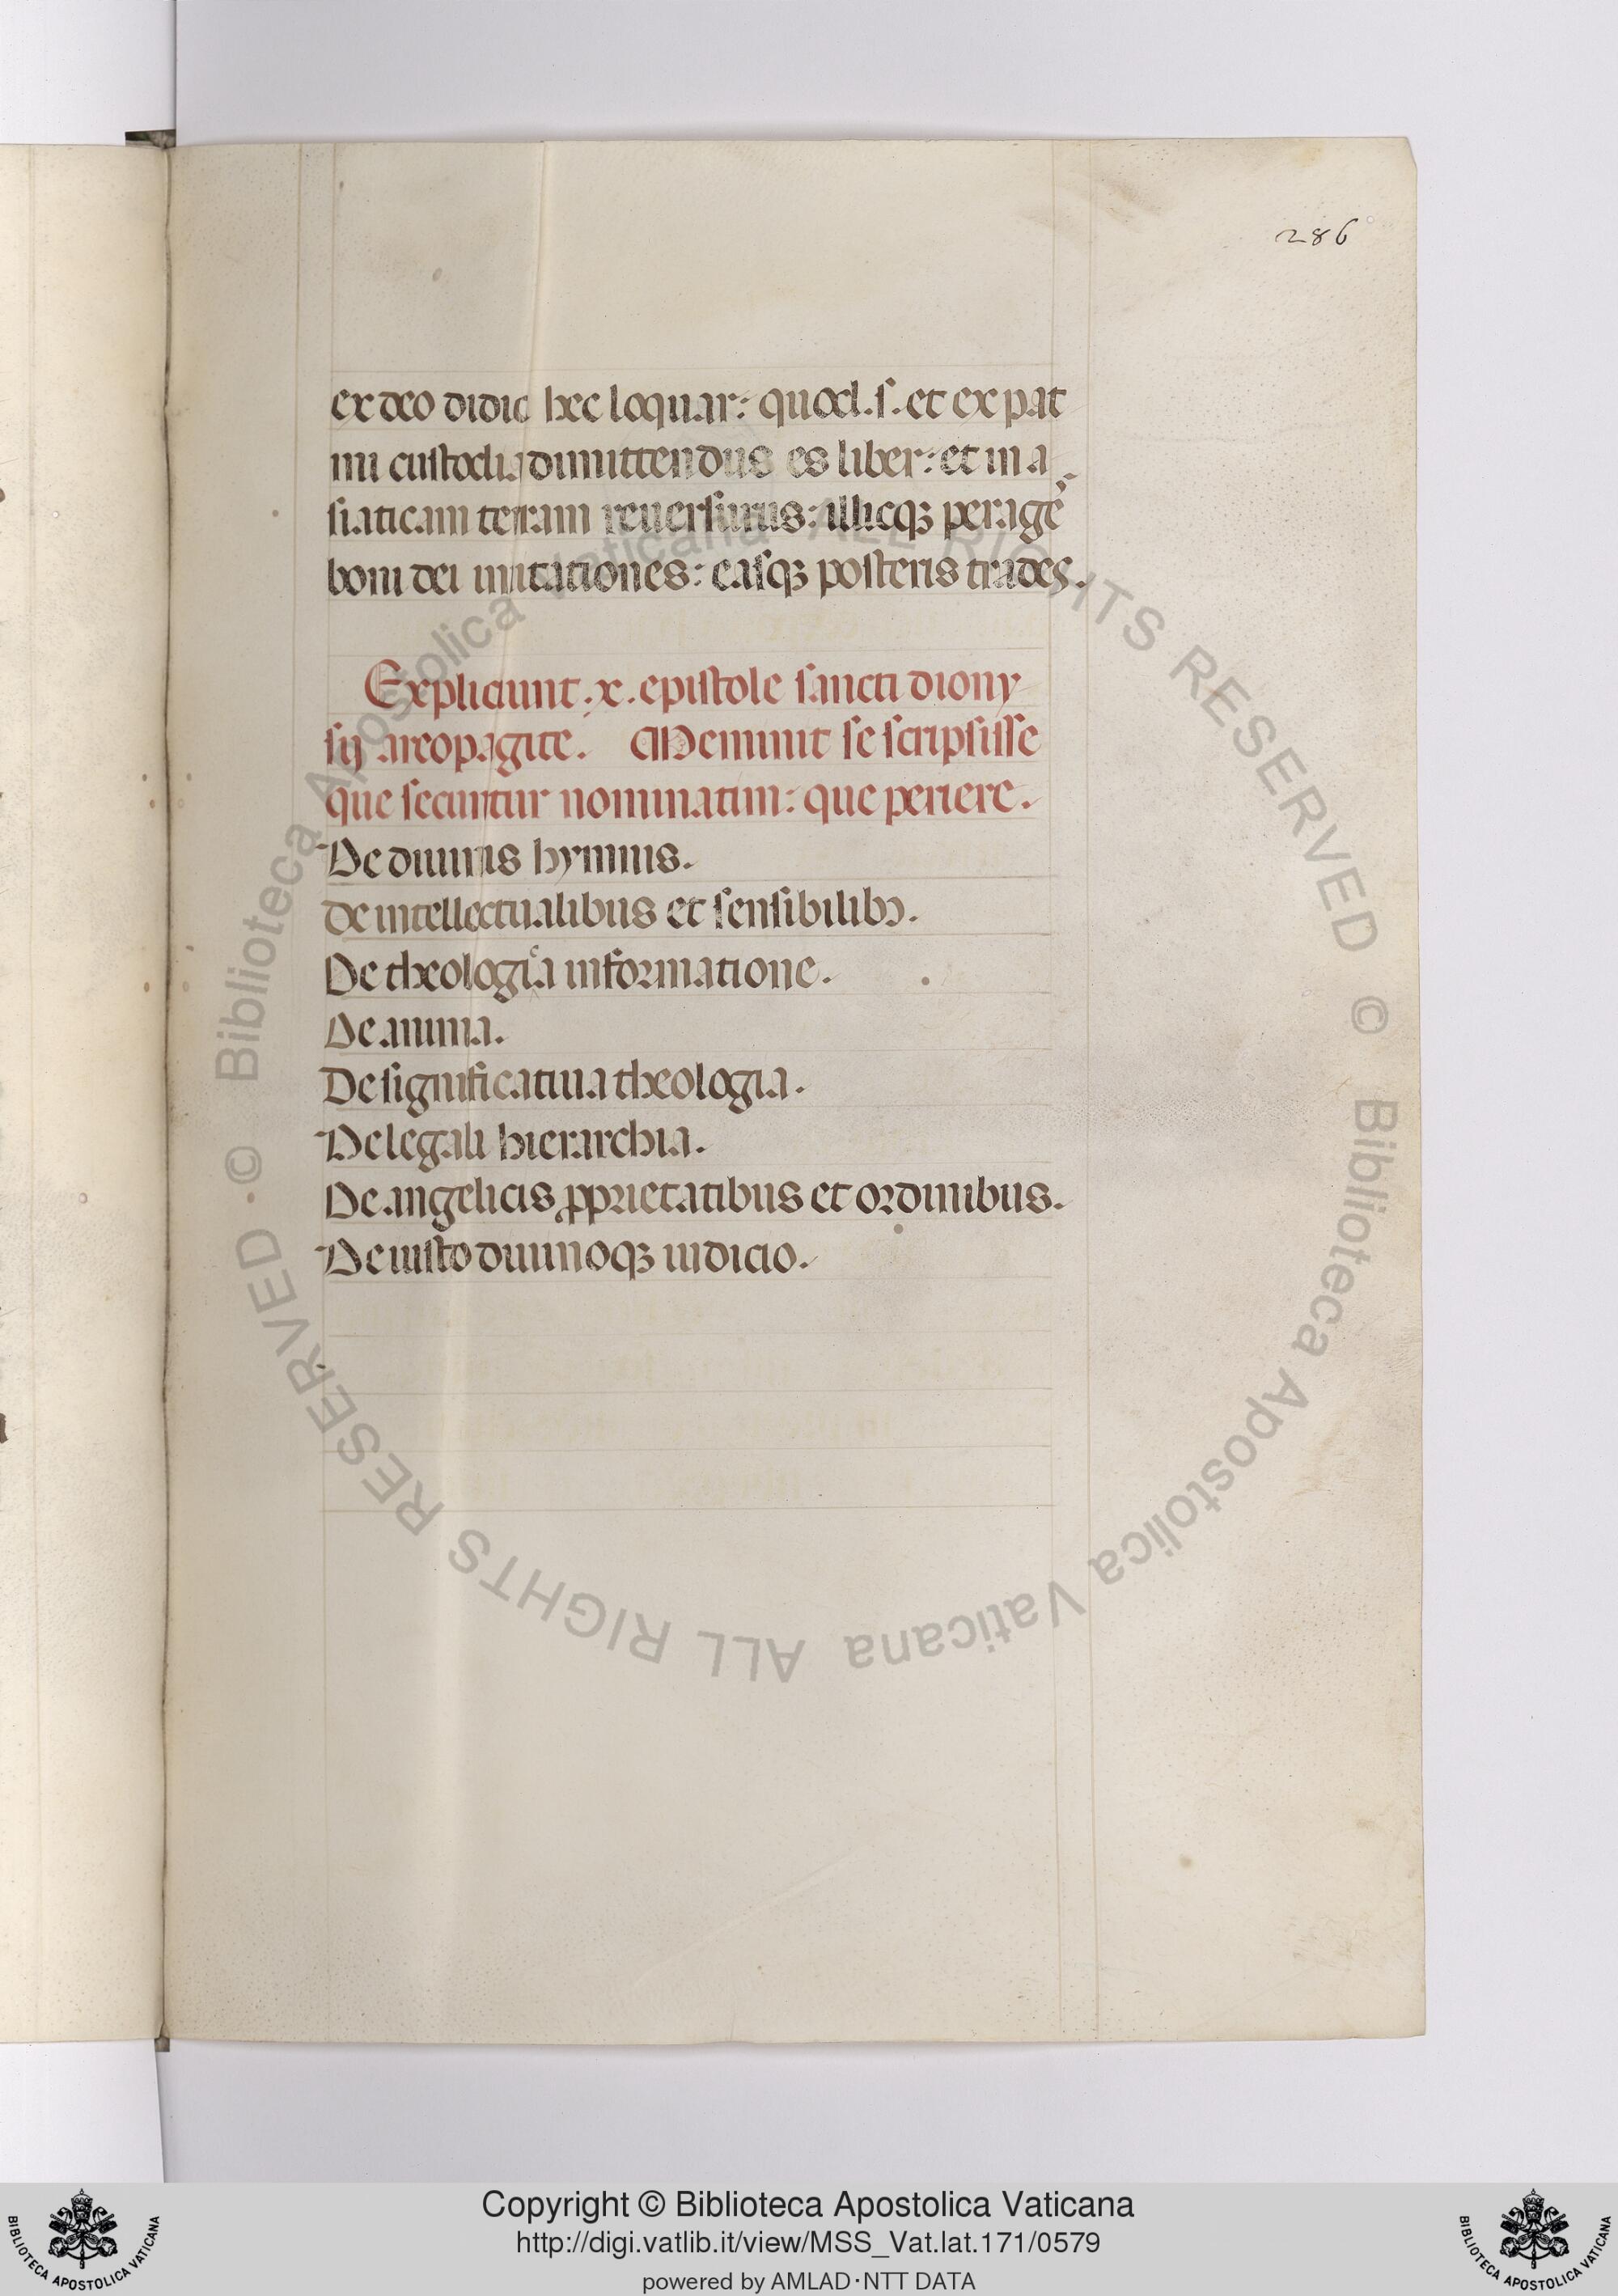 286
ex deo didici hec loquar: quod .s. et ex pat
mi custodia dimittendus es liber: et in a
siaticam terram reuersurus: illicqꝫ perage
boni dei imitationes: easqꝫ posteris trades.
Expliciunt .x. epistole sancti diony
sij areopagite. Meminit se scripsisse
que secuntur nominatim: que periere.
De diuinis hymnis.
de intellectualibus et sensibilibꝫ.
De theologica informatione.
De anima.
De significatiua theologia.
De legali hierarchia.
De angelicis ꝓprietatibus et ordinibus.
De iusto diuinoqꝫ iudicio.
© Biblioteca Apostolica Vaticana ALL RIGHTS RESERVED © Biblioteca Apostolica Vaticana ALL RIGHTS RESERVED
Copyright © Biblioteca Apostolica Vaticana
http://digi.vatlib.it/view/MSS_Vat.lat.171/0579
powered by AMLAD·NTT DATA
BIBLIOTECA APOSTOLICA VATICANA
BIBLIOTECA APOSTOLICA VATICANA